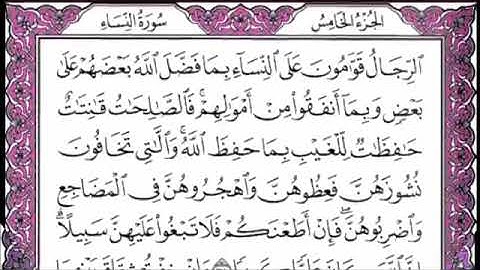 سُورَةُ النِّسَاءِ الجُزْءُ الخَامِسُ
الرِّجَالُ قَوَّامُونَ عَلَى النِّسَاءِ بِمَا فَضَّلَ اللَّهُ بَعْضَهُمْ عَلَىٰ
بَعْضٍ وَبِمَا أَنفَقُوا مِنْ أَمْوَالِهِمْ ۚ فَالصَّالِحَاتُ قَانِتَاتٌ
حَافِظَاتٌ لِّلْغَيْبِ بِمَا حَفِظَ اللَّهُ ۚ وَاللَّاتِي تَخَافُونَ
نُشُوزَهُنَّ فَعِظُوهُنَّ وَاهْجُرُوهُنَّ فِي الْمَضَاجِعِ
وَاضْرِبُوهُنَّ ۖ فَإِنْ أَطَعْنَكُمْ فَلَا تَبْغُوا عَلَيْهِنَّ سَبِيلًا ۗ